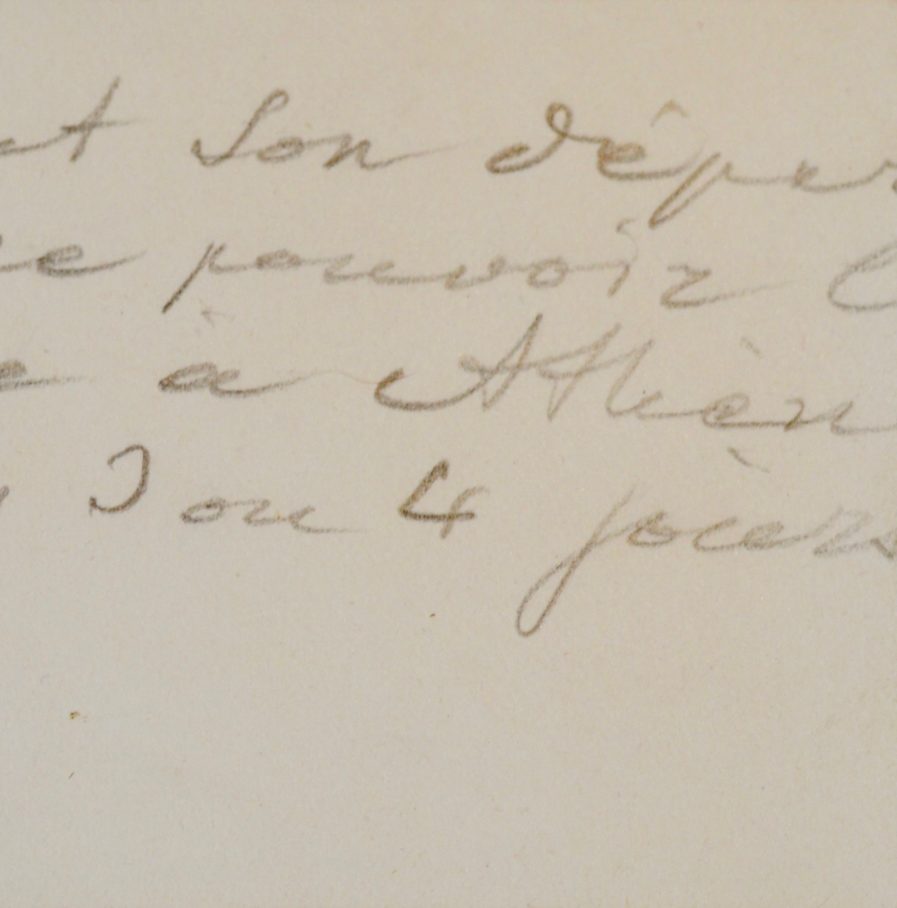 son déper
pouvoir
à Athèn
3 ou 4 jours